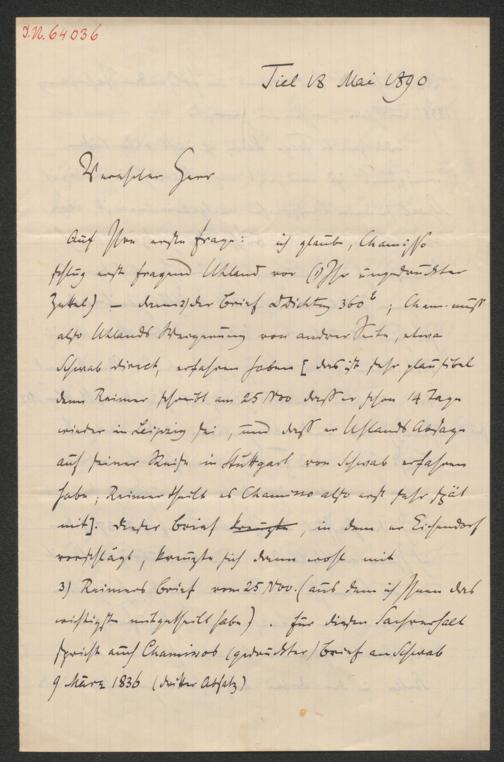 I.N. 64036
Kiel 18 Mai 1890
Verehrter Herr
Auf Ihre erste Frage: ich glaube, Chamisso
schlug erst fragend Uhland vor (1) Ihr ungedruckter
Zettel) — dann 2) der Brief 360 ; Cham. muß
also Uhlands Weigerung von andrer Seite, etwa
Schwab direct, erfahren haben [das ist sehr plausibel
denn Reimer schreibt am 25 Nov daß er schon 14 Tage
wieder in Leipzig sei, und daß er Uhlands Absage
auf seiner Reise in Stuttgart von Schwab erfahren
habe; Reimer theilt es Chamisso also erst sehr spät
mit]. Dieser Brief kreuzte, in dem er Eichendorf
vorschlägt, kreuzte sich dann wohl mit
3) Reimers Brief vom 25 Nov. (aus dem ich Ihnen das
wichtigste mitgetheilt habe). Für diesen Sachverhalt
spricht auch Chamissos (gedruckter) Brief an Schwab
9 März 1836 (dritter Absatz)